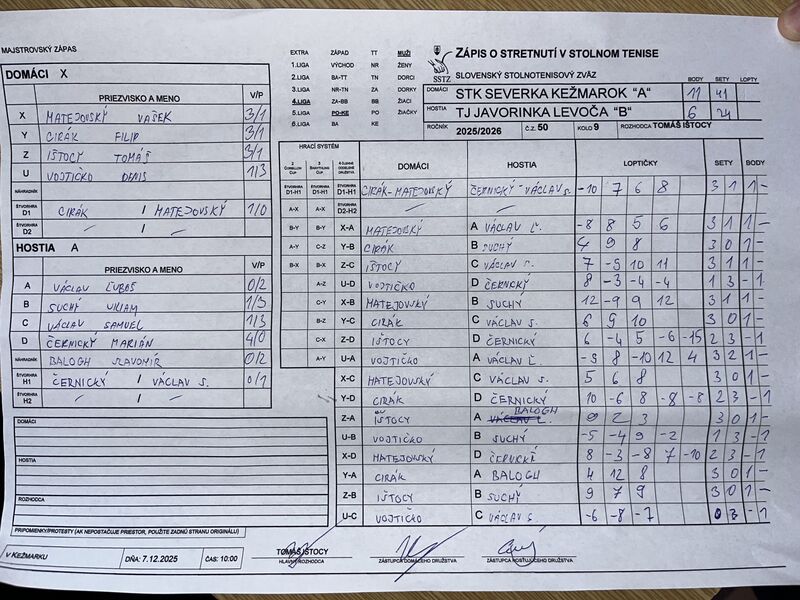 MAJSTROVSKÝ ZÁPAS
DOMÁCI X
PRIEZVISKO A MENO V/P
X MATEJOVSKÝ VAŠEK 3/1
Y CIRÁK FILIP 3/1
Z IŠTOCY TOMÁŠ 3/1
U VOJTIČKO DENIS 1/3
NÁHRADNÍK
ŠTVORHRA D1 CIRÁK / MATEJOVSKÝ 1/0
ŠTVORHRA D2 — / —
HOSTIA A
PRIEZVISKO A MENO V/P
A VÁCLAV ĽUBOŠ 0/2
B SUCHÝ VILIAM 1/3
C VÁCLAV SAMUEL 1/3
D ČERNICKÝ MARIÁN 4/0
NÁHRADNÍK BALOGH SLAVOMÍR 0/2
ŠTVORHRA H1 ČERNICKÝ / VÁCLAV S. 0/1
ŠTVORHRA H2 — / —
DOMÁCI
HOSTIA
ROZHODCA
PRIPOMIENKY/PROTESTY (AK NEPOSTAČUJE PRIESTOR, POUŽITE ZADNÚ STRANU ORIGINÁLU)
V KEŽMARKU DŇA: 7.12.2025 ČAS: 10:00
EXTRA ZÁPAD TT MUŽI
1.LIGA VÝCHOD NR ŽENY
2.LIGA BA-TT TN DORCI
3.LIGA NR-TN ZA DORKY
4.LIGA ZA-BB BB ŽIACI
5.LIGA PO-KE PO ŽIAČKY
6.LIGA BA KE
SSTZ
ZÁPIS O STRETNUTÍ V STOLNOM TENISE
SLOVENSKÝ STOLNOTENISOVÝ ZVÄZ
BODY SETY LOPTY
DOMÁCI STK SEVERKA KEŽMAROK "A" 11 41
HOSTIA TJ JAVORINKA LEVOČA "B" 6 24
ROČNÍK 2025/2026 Č.Z. 50 KOLO 9 ROZHODCA TOMÁŠ IŠTOCY
HRACÍ SYSTÉM DOMÁCI HOSTIA LOPTIČKY SETY BODY
ŠTVORHRA D1-H1 ŠTVORHRA D1-H1 ŠTVORHRA D1-H1 CIRÁK-MATEJOVSKÝ ČERNICKÝ-VÁCLAV S. -10 7 6 8 3 1 1 -
A-X A-X ŠTVORHRA D2-H2 — —
B-Y B-Y X-A MATEJOVSKÝ A VÁCLAV Ľ. -8 8 5 6 3 1 1 -
A-Y C-Z Y-B CIRÁK B SUCHÝ 4 9 8 3 0 1 -
B-X B-X Z-C IŠTOCY C VÁCLAV S. 7 -5 10 11 3 1 1 -
A-Z U-D VOJTIČKO D ČERNICKÝ 8 -3 -4 -4 1 3 - 1
C-Y X-B MATEJOVSKÝ B SUCHÝ 12 -9 9 12 3 1 1 -
B-Z Y-C CIRÁK C VÁCLAV S. 6 9 10 3 0 1 -
C-X Z-D IŠTOCY D ČERNICKÝ 6 -4 5 -6 -15 2 3 - 1
A-Y U-A VOJTIČKO A VÁCLAV Ľ. -9 8 -10 12 4 3 2 1 -
X-C MATEJOVSKÝ C VÁCLAV S. 5 6 8 3 0 1 -
Y-D CIRÁK D ČERNICKÝ 10 -6 8 -8 -8 2 3 - 1
Z-A IŠTOCY A BALOGH 9 2 3 3 0 1 -
U-B VOJTIČKO B SUCHÝ -5 -4 9 -2 1 3 - 1
X-D MATEJOVSKÝ D ČERNICKÝ 8 -3 -8 7 -10 2 3 - 1
Y-A CIRÁK A BALOGH 4 12 8 3 0 1 -
Z-B IŠTOCY B SUCHÝ 9 7 9 3 0 1 -
U-C VOJTIČKO C VÁCLAV S. -6 -8 -7 0 3 - 1
TOMÁŠ IŠTOCY
HLAVNÝ ROZHODCA ZÁSTUPCA DOMÁCEHO DRUŽSTVA ZÁSTUPCA HOSŤUJÚCEHO DRUŽSTVA